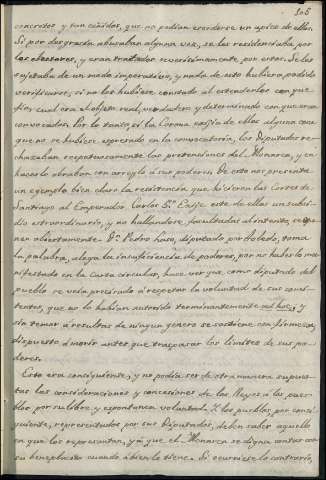 106
concretos y tan ceñidos, que no podian excederse un apice de ellos.
Si por desgracia abusaban alguna vez, se les residenciaba por
los electores, y eran tratados severisimamente por estos. Se les
sujetaba de un modo imperativo, y nada de esto hubiera podido
verificarse, si no les hubiese constado al extenderlos con pun-
tos, cual era el objeto real, verdadero y determinado con que eran
convocados. Por lo tanto, si la Corona exijia de ellos alguna cosa
que no se hubiese espresado en la convocatoria, los Diputados re-
chazaban respetuosamente las pretensiones del Monarca, y en
hacerlo obraban con arreglo á sus poderes. De esto nos presenta
un ejemplo bien claro la resistencia que hicieron las Cortes de
Santiago al Emperador Carlos 5º. Exije este de ellas un subsi-
dio extraordinario, y no hallandose facultadas al intento, se opo-
nen abiertamente. Dn. Pedro Laso, diputado por Toledo, toma
la palabra, alega la insuficiencia de poderes, por no haberlo ma-
nifestado en la carta circular, hace ver que como diputado del
pueblo se veia precisado á respetar la voluntad de sus comi-
tentes, que no lo habian autorido terminantemente ad hoc; y
sin temor á resultas de ningun genero se sostiene con firmeza,
dispuesto á morir antes que traspasar los limites de sus po-
deres.
Esto era consiguiente, y no podia ser de otra manera supues-
tas las consideraciones y concesiones de los Reyes á los pue-
blos por su libre y espontanea voluntad. Y los pueblos, por consi-
guiente, representados por sus Diputados, deben saber aquello
en que los representan, ya que el Monarca se digna contar con
su beneplacito cuando á bien lo tiene. Si ocurriese lo contrario,